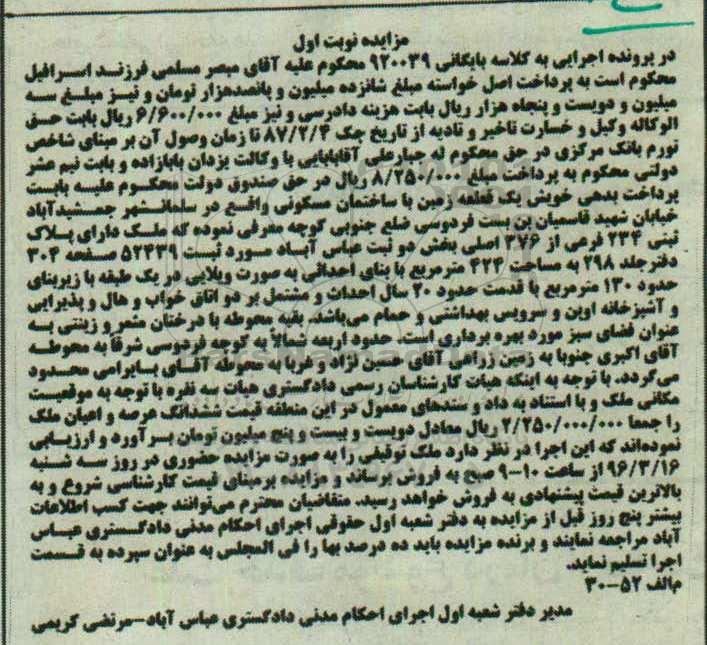 مزایده نوبت اول
در پرونده اجرایی به کلاسه بایگانی ۹۲۰۰۳۹ محکوم علیه آقای مبصر مسلمی فرزند اسرافیل
محکوم است به پرداخت اصل خواسته مبلغ شانزده میلیون و پانصدهزار تومان و نیز مبلغ سه
میلیون و دویست و پنجاه هزار ریال بابت هزینه دادرسی و نیز مبلغ ۶/۶۰۰/۰۰۰ ریال بابت حق
الوکاله وکیل و خسارت تاخیر و تادیه از تاریخ چک ۸۷/۲/۴ تا زمان وصول آن بر مبنای شاخص
تورم بانک مرکزی در حق محکوم له جبارعلی آقابابایی با وکالت یزدان بابازاده و بابت نیم عشر
دولتی محکوم به پرداخت مبلغ ۸/۲۵۰/۰۰۰ ریال در حق صندوق دولت محکوم علیه بابست
پرداخت بدهی خویش یک قطعه زمین با ساختمان مسکونی واقع در سلمانشهر جمشیدآباد
خیابان شهید قاسمیان بن بست فردوسی ضلع جنوبی کوچه معرفی نموده که ملک دارای پلاک
ثبتی ۲۳۴ فرعی از ۳۷۶ اصلی بخش دو ثبت عباس آباد مورد ثبت ۵۲۴۳۹ صفحه ۳۰۴
دفترجلد ۲۹۸ به مساحت ۴۲۴ مترمربع با بنای احداثی به صورت ویلایی در یک طبقه با زیربنای
حدود ۱۳۰ مترمربع با قدمت حدود ۲۰ سال احداث و مشتمل بر دو اتاق خواب و هال و پذیرایی
و آشپزخانه اوپن و سرویس بهداشتی و حمام می‌باشد. بقیه محوطه با درختان مثمر و زینتی به
عنوان فضای سبز مورد بهره برداری است. حدود اربعه شمالاً به کوچه فردوسی شرقا به محوطه
آقای اکبری جنوبا به زمین زراعی آقای حسین نژاد و غربا به محوطه آقای بایرامی محدود
می‌گردد. با توجه به اینکه هیات کارشناسان رسمی دادگستری هیات سه نفره با توجه به موقعیت
مکانی ملک و با استناد به داد و ستدهای معمول در این منطقه قیمت ششدانگ عرصه و اعیان ملک
را جمعا ۲/۲۵۰/۰۰۰/۰۰۰ ریال معادل دویست و بیست و پنج میلیون تومان برآورد و ارزیابی
نموده‌اند که این اجرا در نظر دارد ملک توقیفی را به صورت مزایده حضوری در روز سه شنبه
۹۶/۳/۱۶ از ساعت ۱۰-۹ صبح به فروش برساند و مزایده برمبنای قیمت کارشناسی شروع و به
بالاترین قیمت پیشنهادی به فروش خواهد رسید. متقاضیان محترم می‌توانند جهت کسب اطلاعات
بیشتر پنج روز قبل از مزایده به دفتر شعبه اول حقوقی اجرای احکام مدنی دادگستری عباس
آباد مراجعه نمایند و برنده مزایده باید ده درصد بها را فی المجلس به عنوان سپرده به قسمت
اجرا تسلیم نماید.
م‌الف ۵۲-۳۰
مدیر دفتر شعبه اول اجرای احکام مدنی دادگستری عباس آباد-مرتضی کریمی